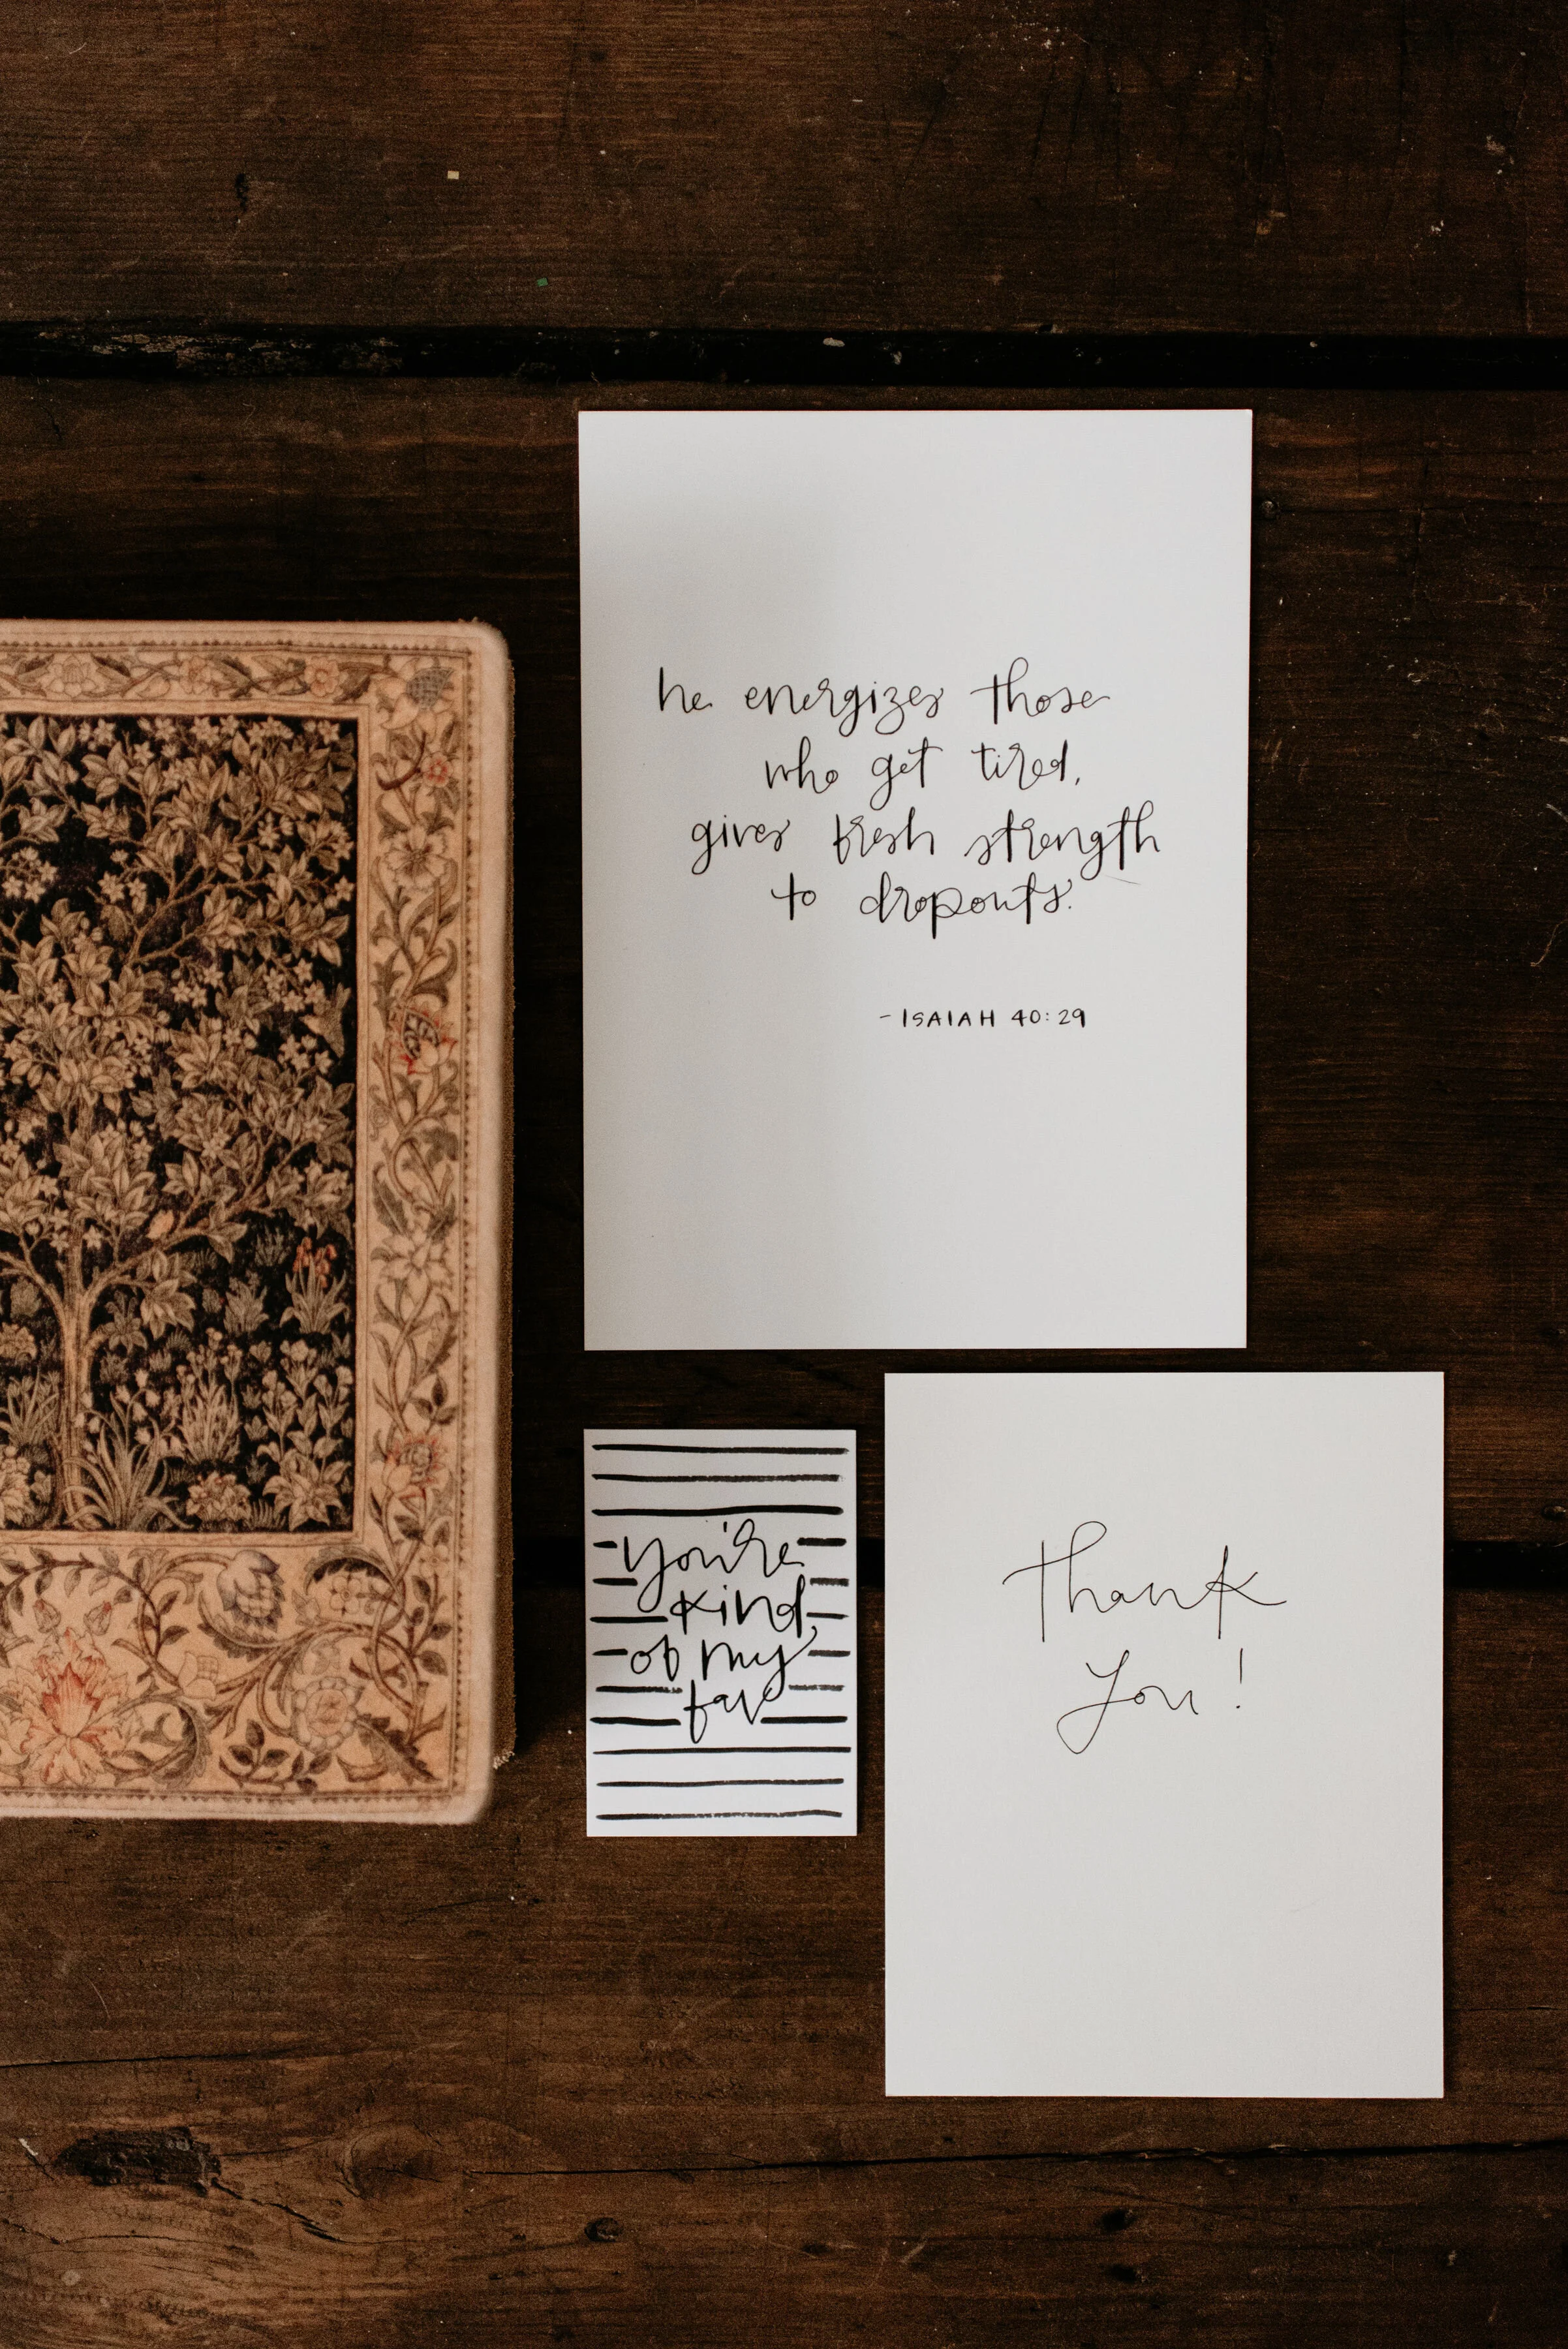 he energizes those
who get tired,
gives fresh strength
to dropouts.
- ISAIAH 40:29
you're
kind
of my
fav
thank
you!